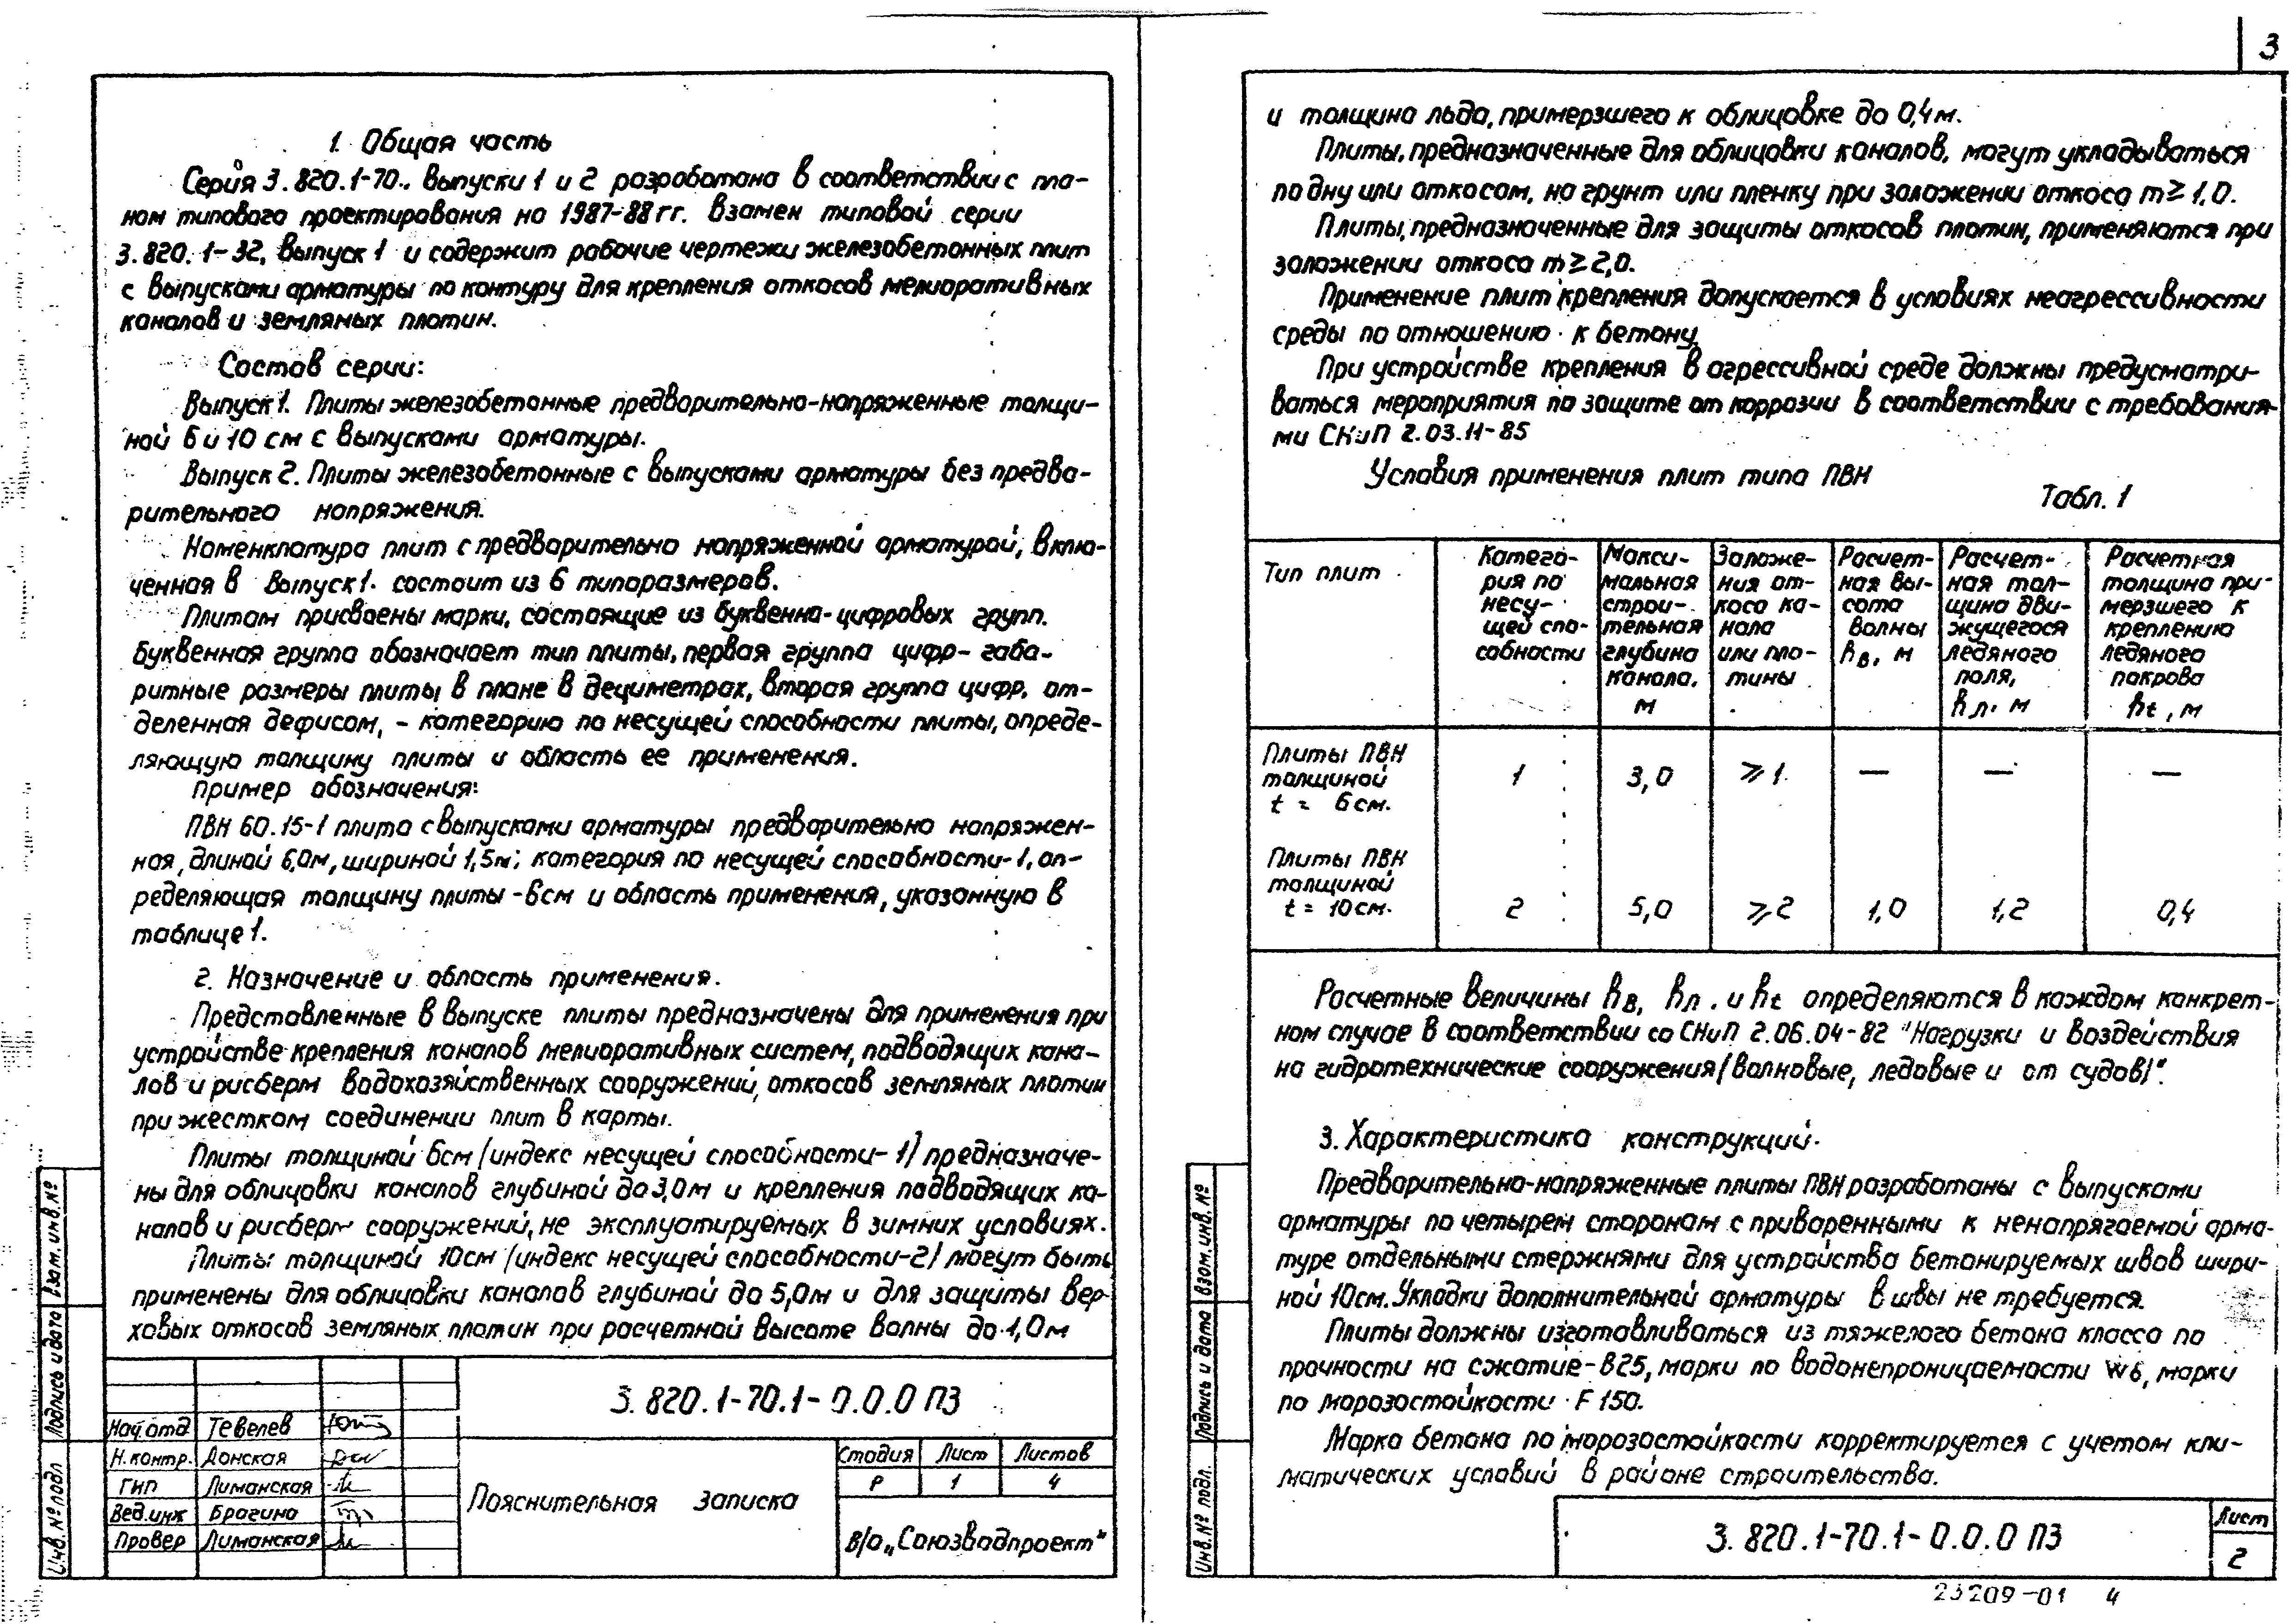 3
1. Общая часть
Серия 3.820.1-70., выпуски 1 и 2 разработана в соответствии с пла-
ном типового проектирования на 1987-88 гг. взамен типовой серии
3.820.1-32, выпуск 1 и содержит рабочие чертежи железобетонных плит
с выпусками арматуры по контуру для крепления откосов мелиоративных
каналов и земляных плотин.
Состав серии:
Выпуск 1. Плиты железобетонные предварительно-напряженные толщи-
ной 6 и 10 см с выпусками арматуры.
Выпуск 2. Плиты железобетонные с выпусками арматуры без предва-
рительного напряжения.
Номенклатура плит с предварительно напряженной арматурой, вклю-
ченная в выпуск 1. состоит из 6 типоразмеров.
Плитам присвоены марки, состоящие из буквенно-цифровых групп.
Буквенная группа обозначает тип плиты, первая группа цифр- габа-
ритные размеры плиты в плане в дециметрах, вторая группа цифр, от-
деленная дефисом, - категорию по несущей способности плиты, опреде-
ляющую толщину плиты и область ее применения.
Пример обозначения:
ПВН 60.15-1 плита с выпусками арматуры предварительно напряжен-
ная, длиной 6,0м, шириной 1,5м; категория по несущей способности-1, оп-
ределяющая толщину плиты -6см и область применения, указанную в
таблице 1.
2. Назначение и область применения.
Представленные в выпуске плиты предназначены для применения при
устройстве крепления каналов мелиоративных систем, подводящих кана-
лов и рисберм водохозяйственных сооружений, откосов земляных плотин
при жестком соединении плит в карты.
Плиты толщиной 6см /индекс несущей способности-1/ предназначе-
ны для облицовки каналов глубиной до 3,0м и крепления подводящих ка-
налов и рисберм сооружений, не эксплуатируемых в зимних условиях.
Плиты толщиной 10см /индекс несущей способности-2/ могут быть
применены для облицовки каналов глубиной до 5,0м и для защиты вер-
ховых откосов земляных плотин при расчетной высоте волны до 1,0м
Взам. инв. №
Подпись и дата
Инв. № подл
3.820.1-70.1-0.0.0 ПЗ
Нач.отд Тевелев
Н.контр. Донская
ГИП Лиманская
Вед.инж Брагина
Провер Лиманская
Пояснительная записка
Стадия Лист Листов
Р 1 4
В/О „Союзводпроект"
и толщина льда, примерзшего к облицовке до 0,4м.
Плиты, предназначенные для облицовки каналов, могут укладываться
по дну или откосам, на грунт или пленку при заложении откоса m ≥ 1,0.
Плиты, предназначенные для защиты откосов плотин, применяются при
заложении откоса m ≥ 2,0.
Применение плит крепления допускается в условиях неагрессивности
среды по отношению к бетону.
При устройстве крепления в агрессивной среде должны предусматри-
ваться мероприятия по защите от коррозии в соответствии с требования-
ми СНиП 2.03.11-85
Условия применения плит типа ПВН
Табл. 1
Тип плит
Катего-
рия по
несу-
щей спо-
собности
Макси-
мальная
строи-
тельная
глубина
канала,
м
Заложе-
ния от-
коса ка-
нала
или пло-
тины
Расчет-
ная вы-
сота
волны
hв, м
Расчет-
ная тол-
щина дви-
жущегося
ледяного
поля,
hл, м
Расчетная
толщина при-
мерзшего к
креплению
ледяного
покрова
ht, м
Плиты ПВН
толщиной
t = 6см.
1 3,0 ≥1 — — —
Плиты ПВН
толщиной
t = 10см.
2 5,0 ≥2 1,0 1,2 0,4
Расчетные величины hв, hл. и ht определяются в каждом конкрет-
ном случае в соответствии со СНиП 2.06.04-82 "Нагрузки и воздействия
на гидротехнические сооружения /волновые, ледовые и от судов/".
3. Характеристика конструкций.
Предварительно-напряженные плиты ПВН разработаны с выпусками
арматуры по четырем сторонам с приваренными к ненапрягаемой арма-
туре отдельными стержнями для устройства бетонируемых швов шири-
ной 10см. Укладки дополнительной арматуры в швы не требуется.
Плиты должны изготавливаться из тяжелого бетона класса по
прочности на сжатие-В25, марки по водонепроницаемости W6, марки
по морозостойкости F 150.
Марка бетона по морозостойкости корректируется с учетом кли-
матических условий в районе строительства.
Взам. инв. №
Подпись и дата
Инв. № подл.
3.820.1-70.1-0.0.0 ПЗ
Лист
2
23209-01 4